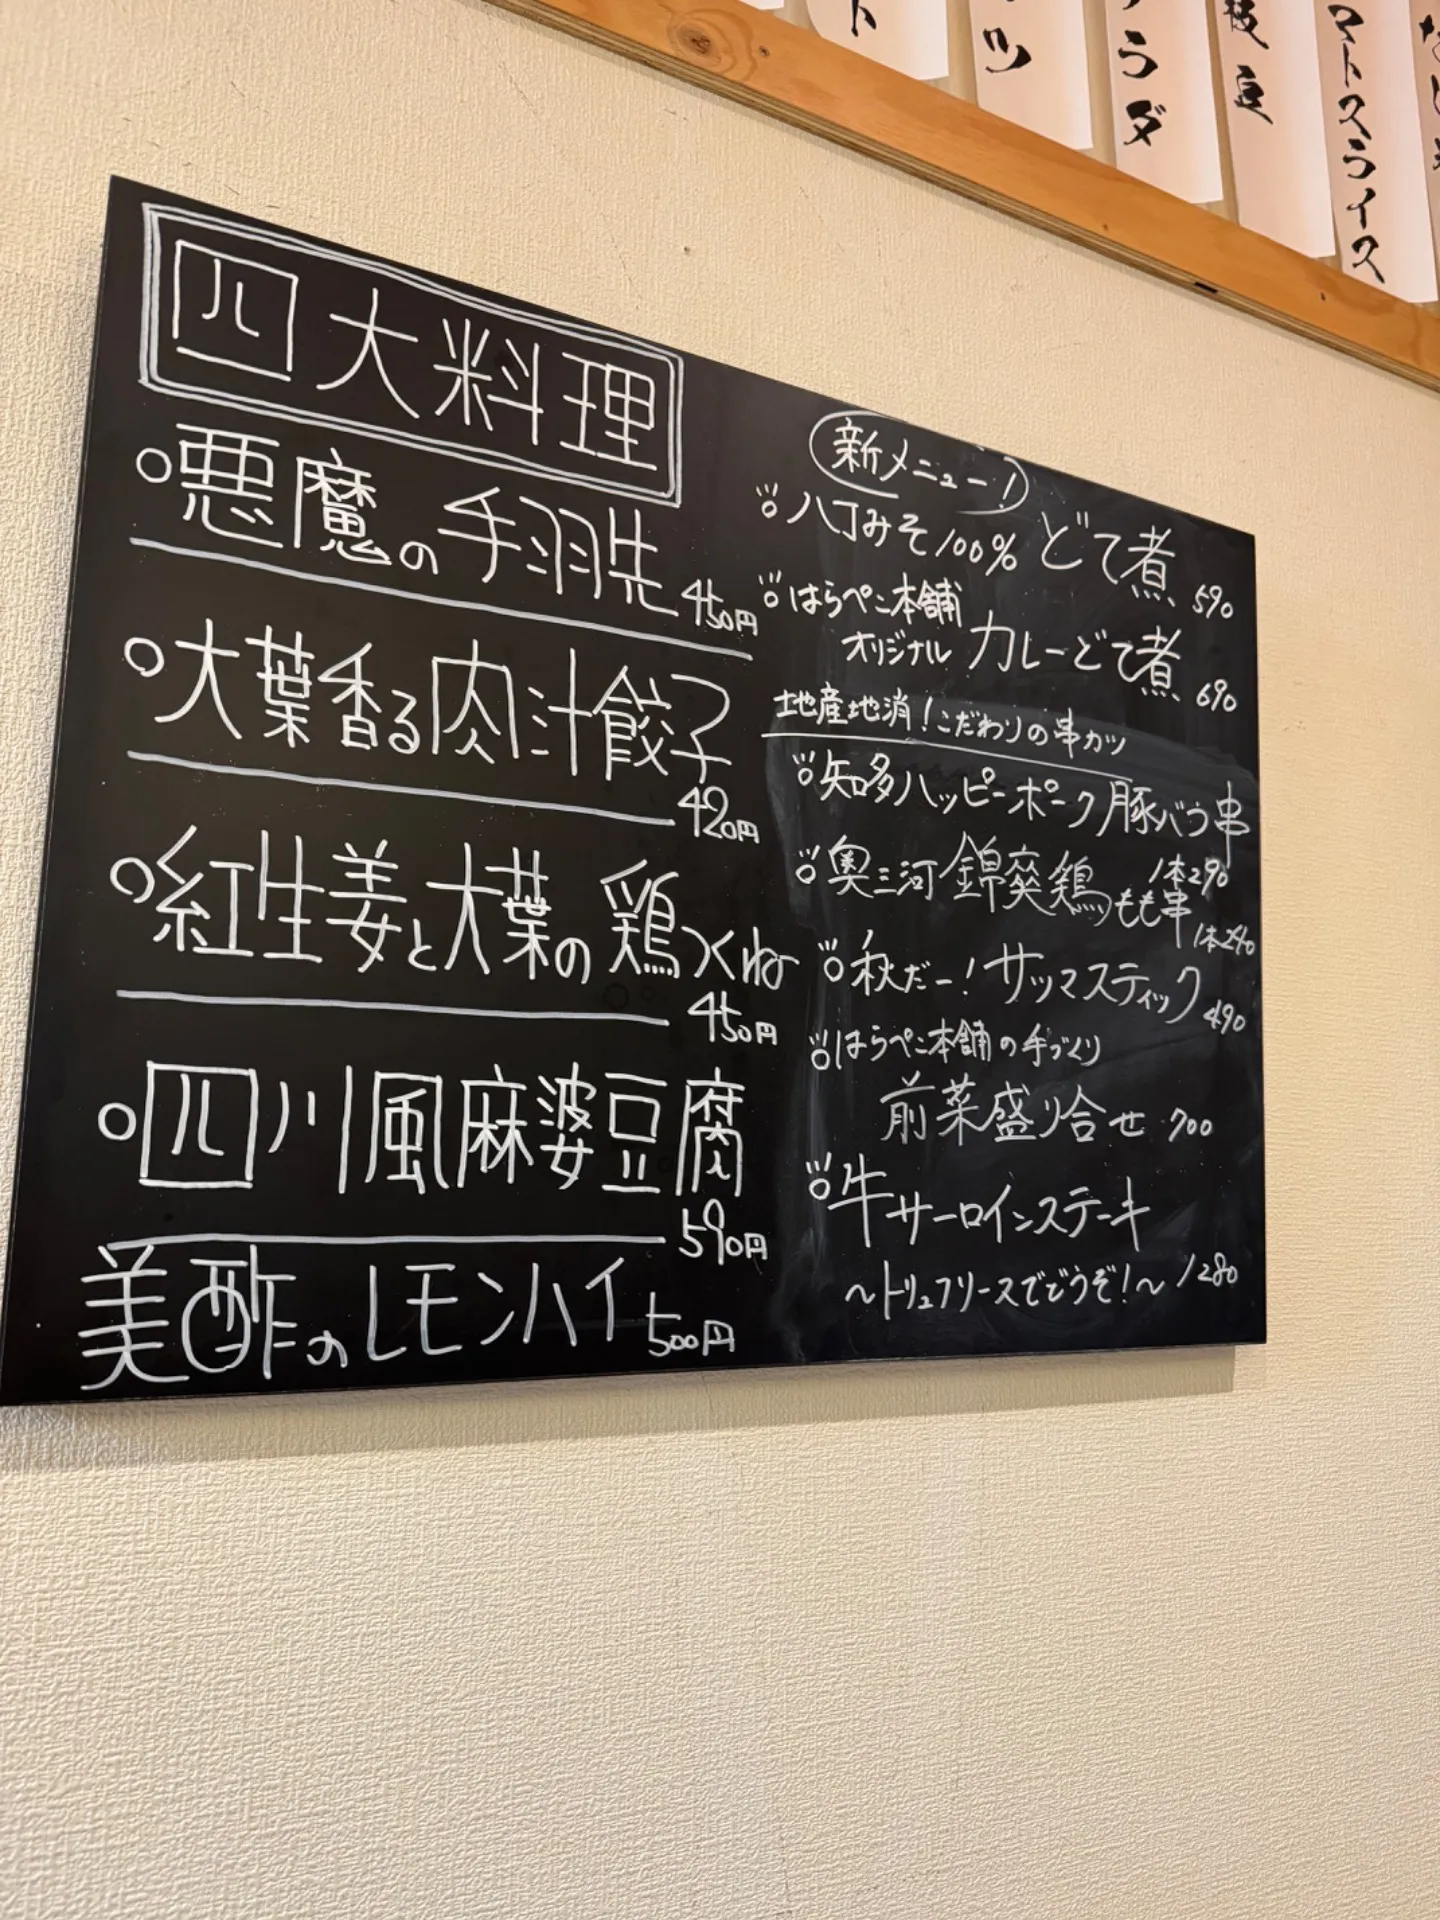 四大料理
○悪魔の手羽先 450円
○大葉香る肉汁餃子
420円
○紅生姜と大葉の鶏つくね
450円
○四川風麻婆豆腐
590円
美酢のレモンハイ 500円
新メニュー!
八丁みそ100% どて煮 590
はらぺこ本舗
オリジナル カレーどて煮 690
地産地消!こだわりの串カツ
知多ハッピーポーク豚バラ串
1本290
奥三河錦爽鶏もも串
1本240
秋だー!サツマスティック 490
はらぺこ本舗の手づくり
前菜盛り合せ 700
牛サーロインステーキ
〜トリュフソースでどうぞ!〜 1280
ト
ツ
ラダ
枝豆
マトスライス